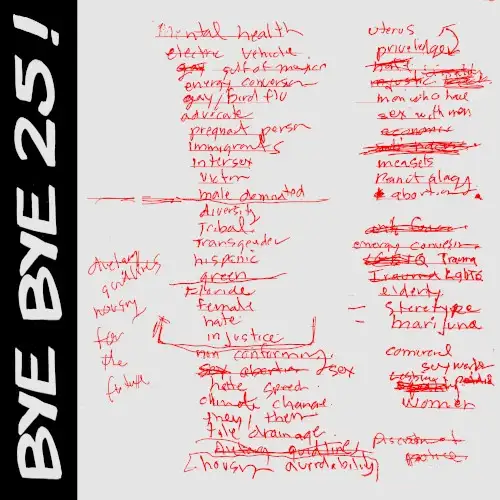 BYE BYE 25!
Mental health
electric vehicle
gay gulf of mexico
energy conversion
gay/bird flu
advocate
pregnant person
immigrants
intersex
victm
male dominated
diversity
Tribal
Transgender
hispanic
green
Floride
female
hate
injustice
non conforming
sex abortion sex
hate speech
climate change
they/them
tile drainage
Dietary guidlines
housng
Dietary
guidlines
housng
for
the
futur
uterus
priveledge
hate
injustic
men who have
sex with men
economic
measels
abortion
energy conversion
LGBTQ Trauma
Trauma
elderly
Steretype
marijuna
comercial
sex work
women